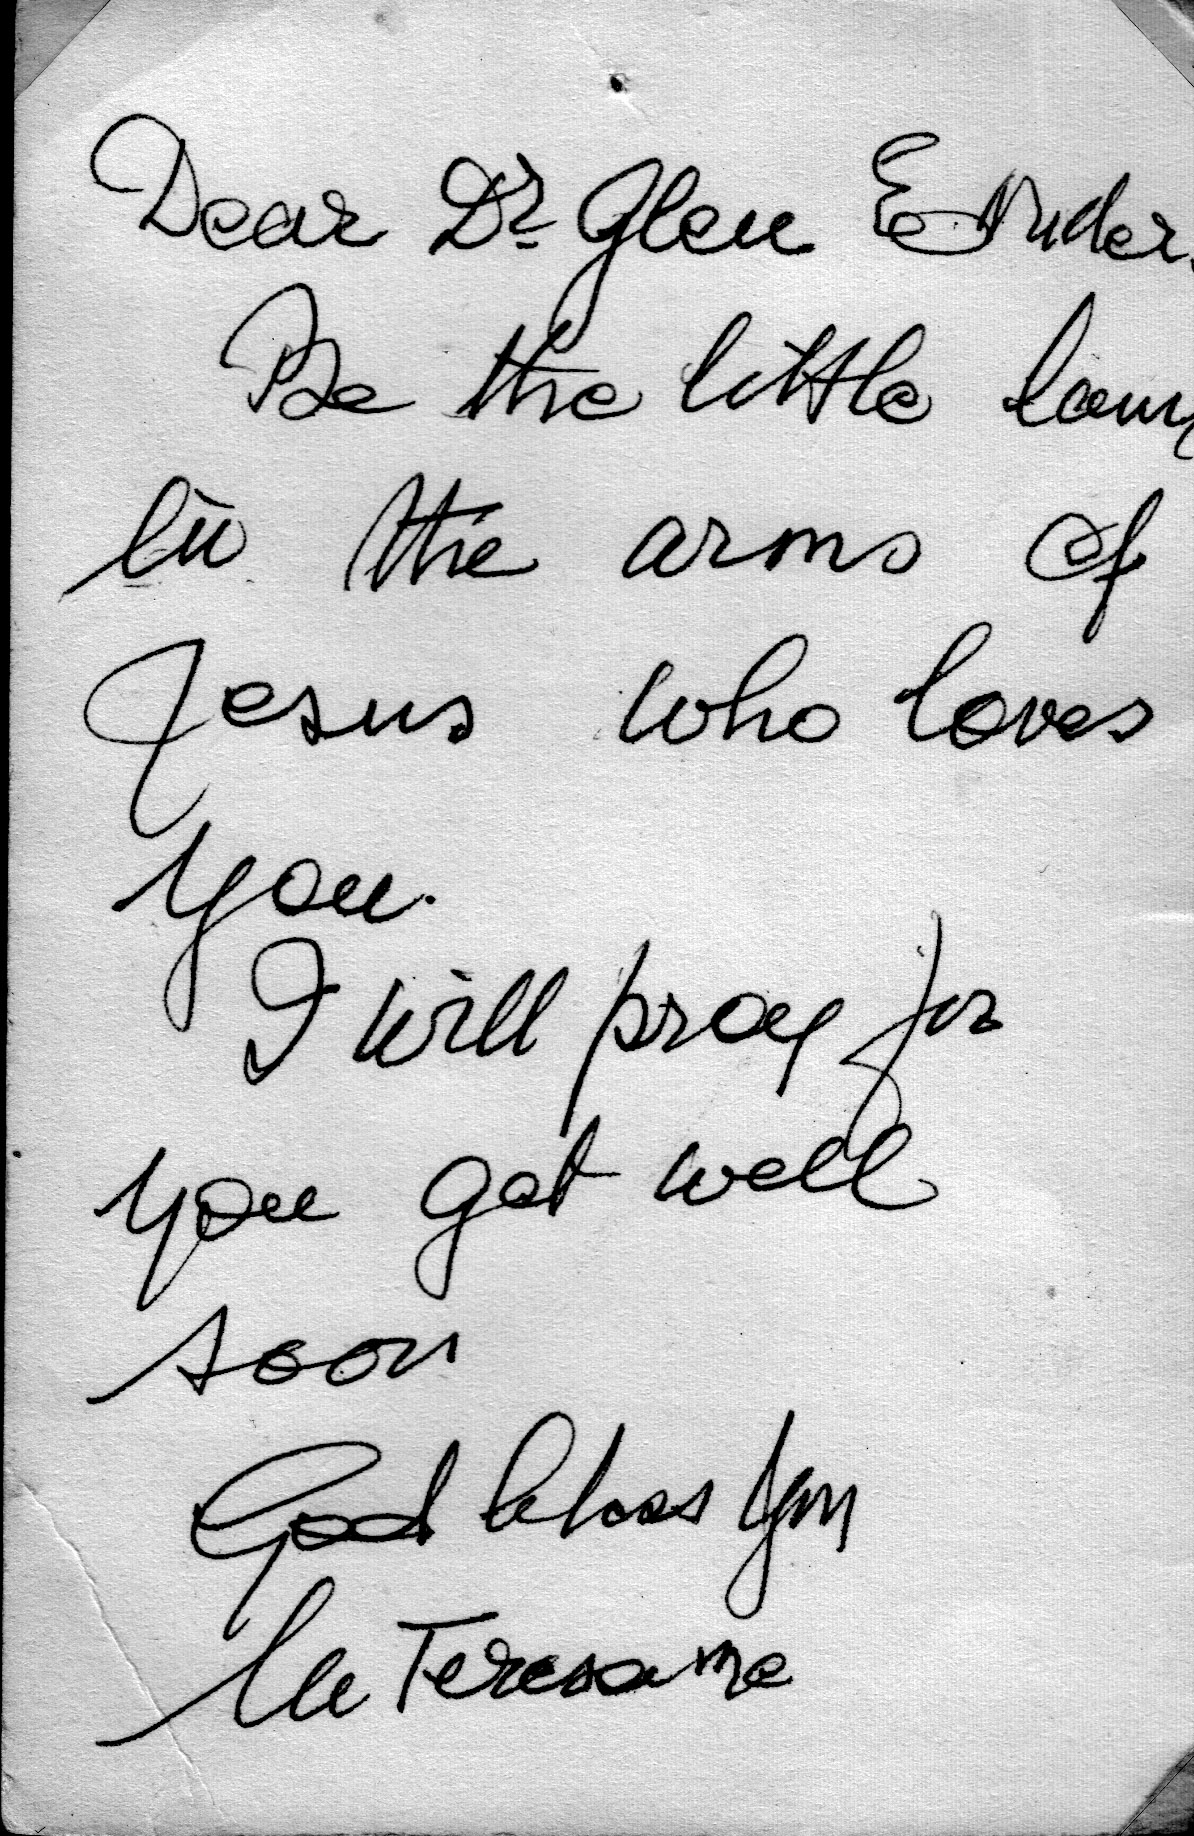 Dear Dr Glen E.
Be the little
in the arms of
Jesus who loves
you.
I will pray for
you get well
soon
God bless you
M Teresa mc